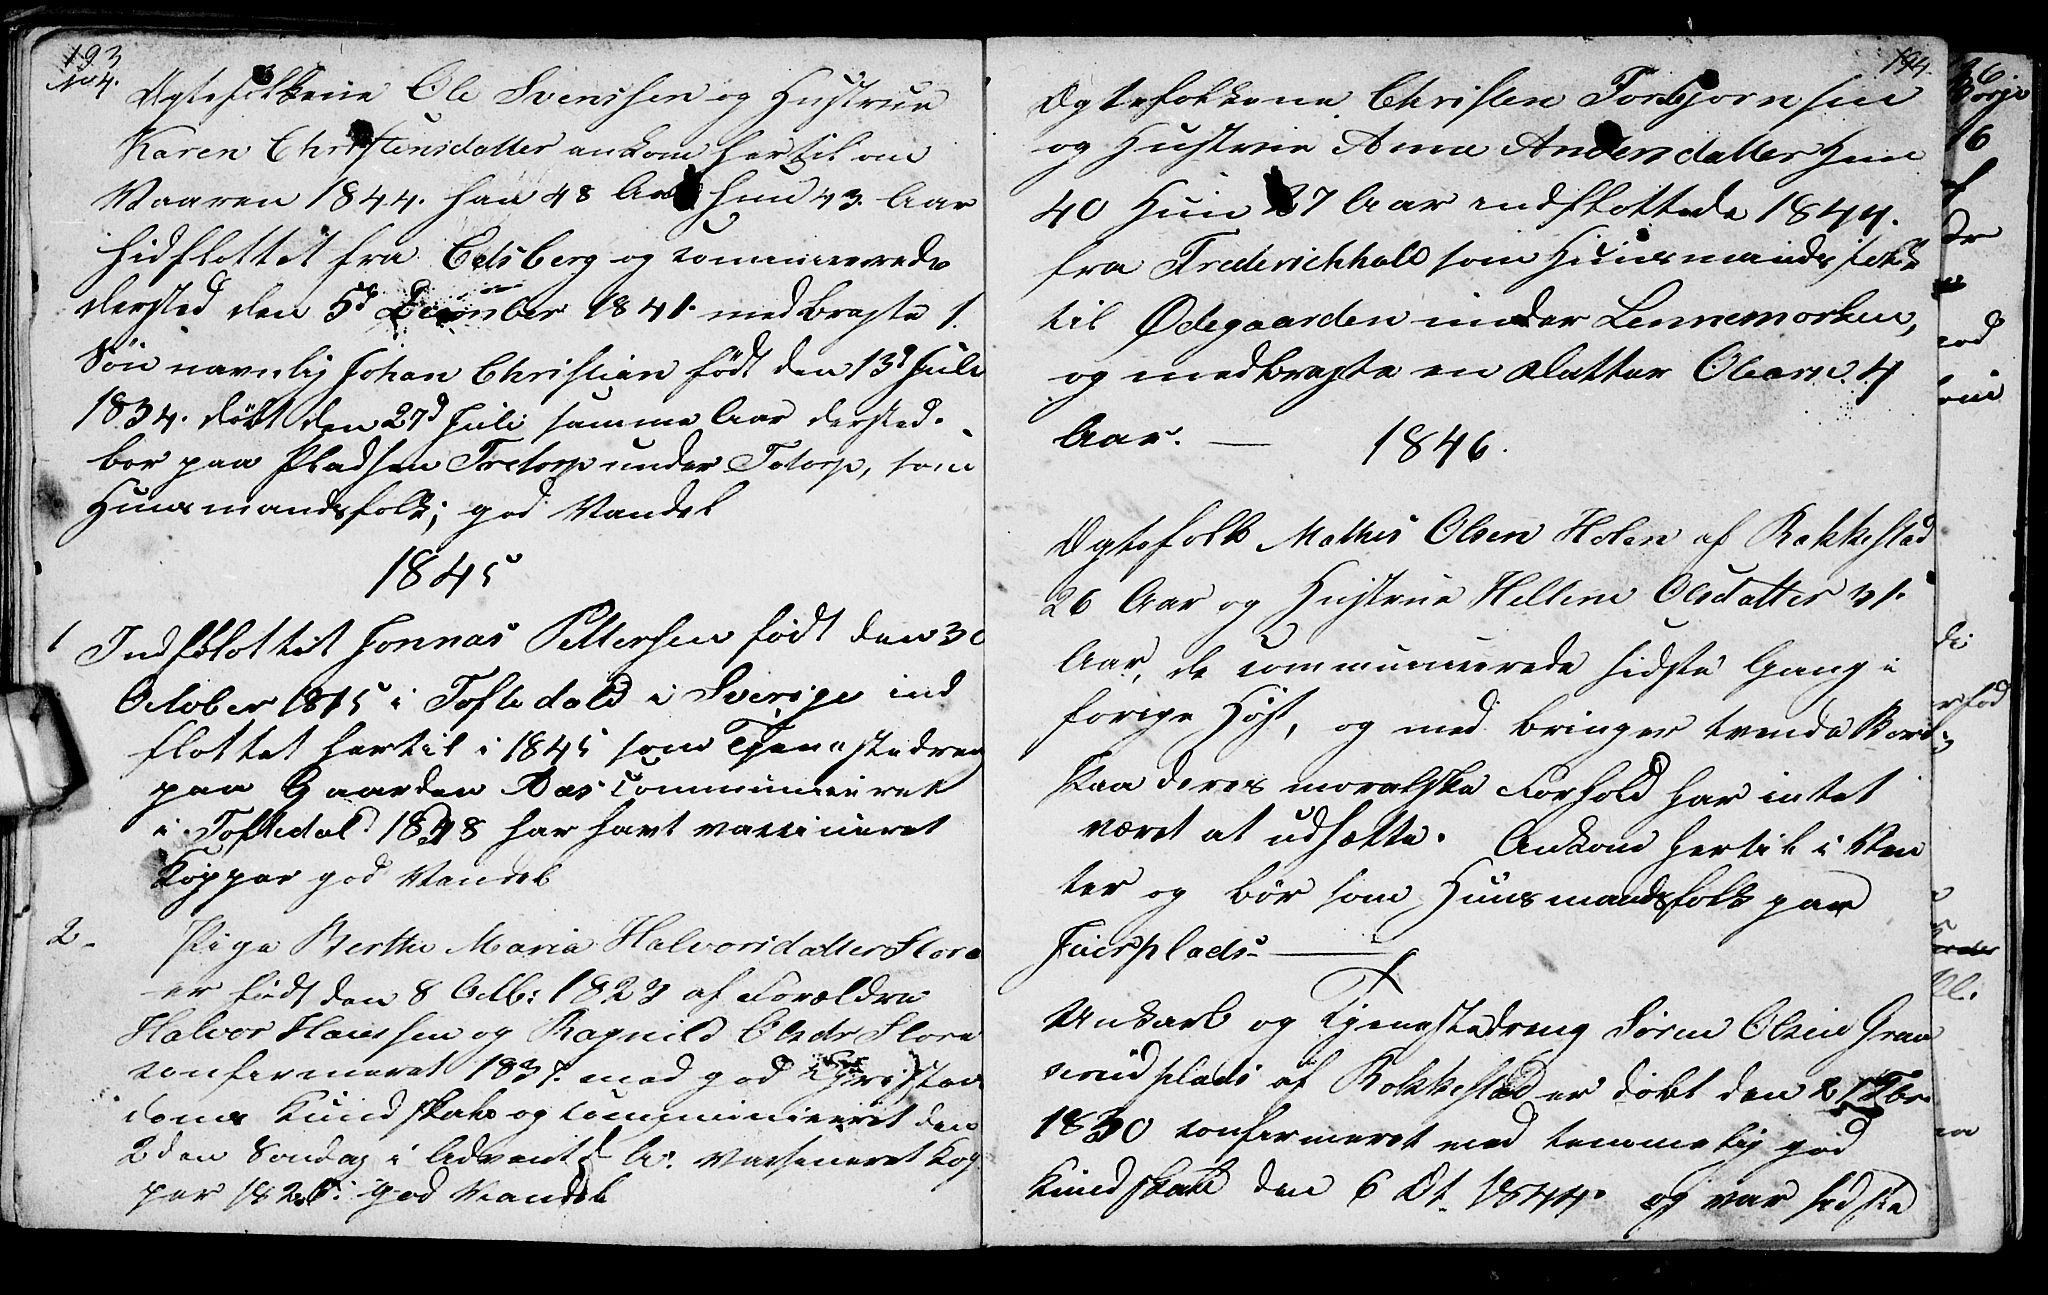 193
No 4.
Ægtefolkene Ole Svensen og Hustrue
Karen Christensdatter ankom hertil om
Vaaren 1844. han 48 Aar hun 43. Aar
hidflottet fra Edsberg og communicerede
dersted den 5d December 1841. medbragte 1.
Søn navnlig Johan Christian födt den 13d Juli
1834. döbt den 27d Juli samme Aar dersted.
bor paa Pladsen Tretorp under Totorp, som
Huusmandsfolk; god Vandel
1845
1 Indflottet Jonnas Pettersen födt den 30
October 1815 i Toftedald i Sverige ind
flottet hertil i 1845 som Tjenestedreng
paa Gaarden Aas communiceret
i Toftedal 1838 har havt vaccineret
Kopper god Vandel
2- Pige Berthe Maria Halvorsdatter Flora
er födt den 8 Octb: 1823 af Forældre
Halvor Hanssen og Ragnild Olsdr Flora
confermeret 1837. med god Christen
doms Kundskab og communiceret den
2den Söndag i Advent d. A. vaxseneret Kop
per 1826. god Vandel
194.
Ægtefolkene Christen Torbjornsen
og Hustrue Anne Andersdatter Han
40 Hun 27 Aar indflottede 1844.
fra Frederichhald som Huusmandsfolk
til Ødegaarden under Lennemorken,
og medbragte en Datter Oleane 4
Aar. —
1846.
Ægtefolk Mathis Olsen Holen af Rakkestad
26 Aar og Hustrue Hellene Olsdatter 31.
Aar, de communicerede sidste Gang i
forige Høst, og med bringer tvende Børn;
Paa deres moralske Forhold har intet
været at udsætte. Ankom hertil i Vin
ter og bor som Huusmandsfolk paa
Fuerplads —
Unkarl og Tjenestedreng Sören Olsen Graa
nrudplads af Rakkestad er döbt den 21 Fbr.
1830 confermeret med temmelig god
Kundskab den 6 Oct. 1844. og var sidste